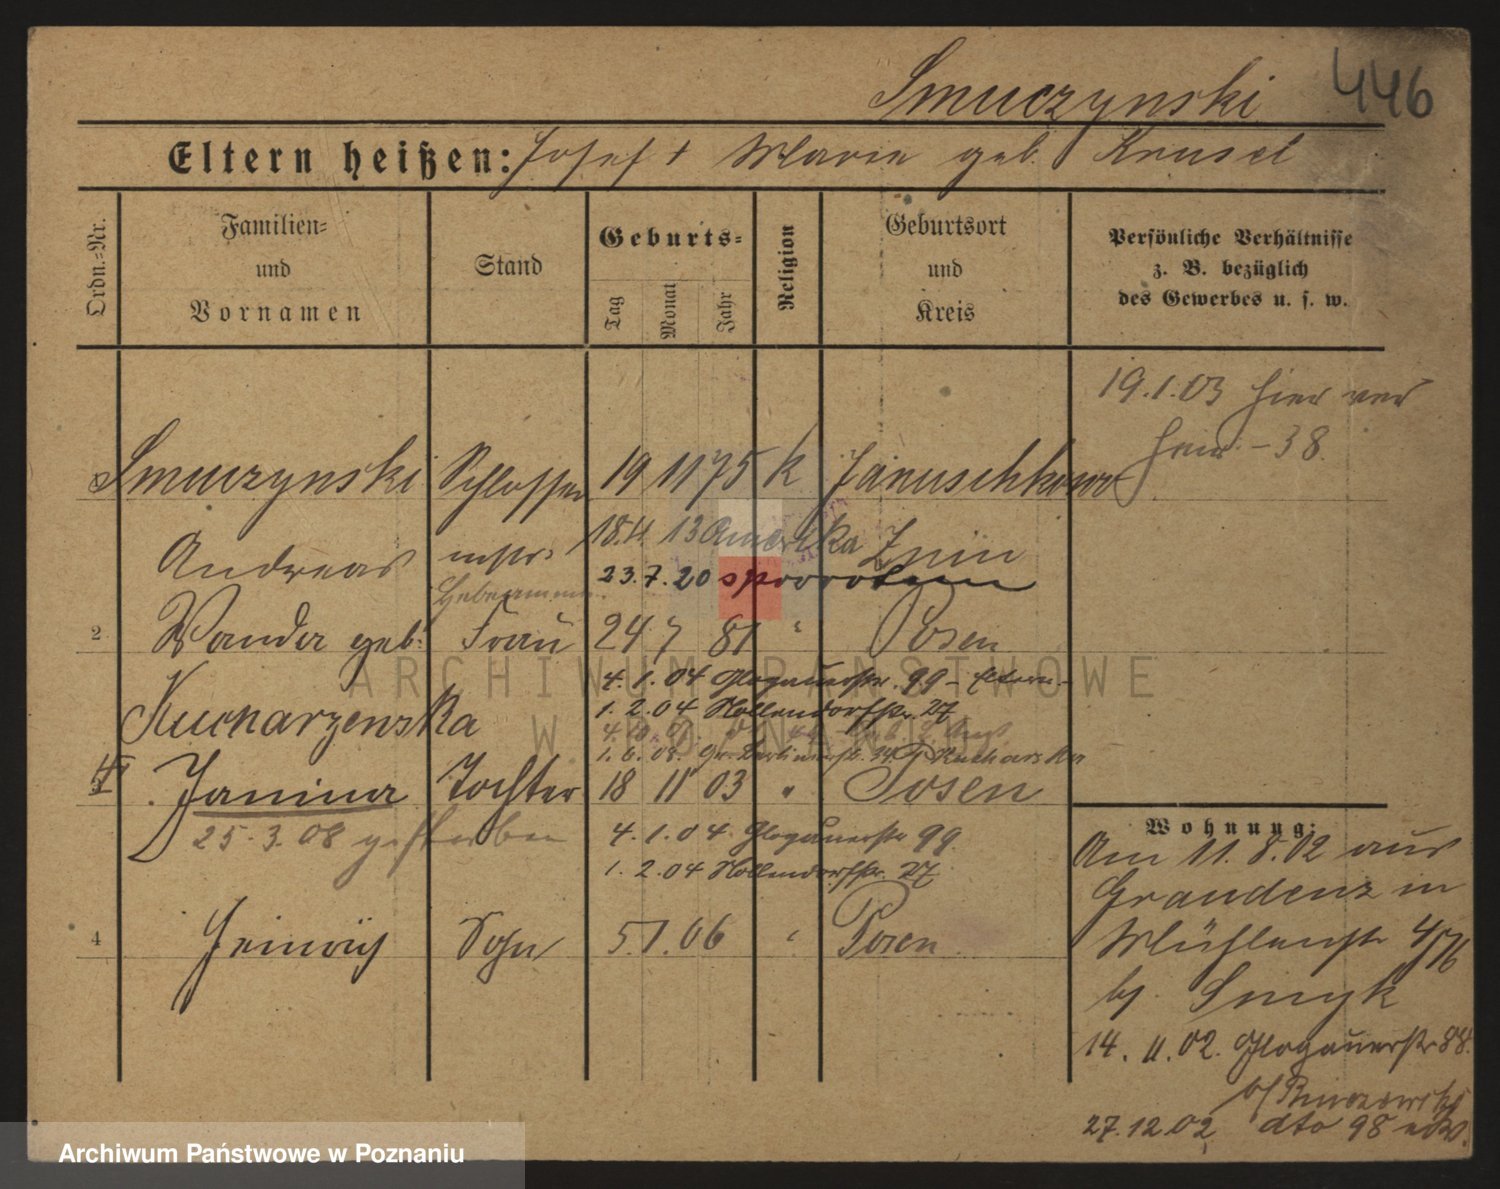 Smuczynski 446
Eltern heißen: Josef + Marie geb. Krusel
Ordn.-Nr.
Familien-
und
Vornamen
Stand
Geburts-
Tag
Monat
Jahr
Religion
Geburtsort
und
Kreis
Persönliche Verhältnisse
z. B. bezüglich
des Gewerbes u. s. w.
19.1.03 hier ver
heir. - 38.
Smuczynski Schlosser 19 11 75 k Januschkowo
Andreas 18.4 13 Amerika Znin
Hebeamme 23.7.20
2 Wanda geb. Frau 24 7 81 " Posen
4.1.04 Glogauerstr. 99 - Eltern -
Kucharzewska 1.2.04 Hollendorfstr. 27
1.6.08. Gr. Berlinerstr.
Janina Tochter 18 11 03 " Posen
25.3.08 gestorben 4.1.04 Glogauerstr 99.
1.2.04 Hollendorfstr. 27
4 Heinrich Sohn 5.1.06 " Posen
Wohnung:
Am 11.8.02 aus
Graudenz in
Mühlenstr
bj. Smyk
14.11.02. Glogauerstr 88.
27.12.02 dto 98
ARCHIWUM PAŃSTWOWE
W POZNANIU
Archiwum Państwowe w Poznaniu